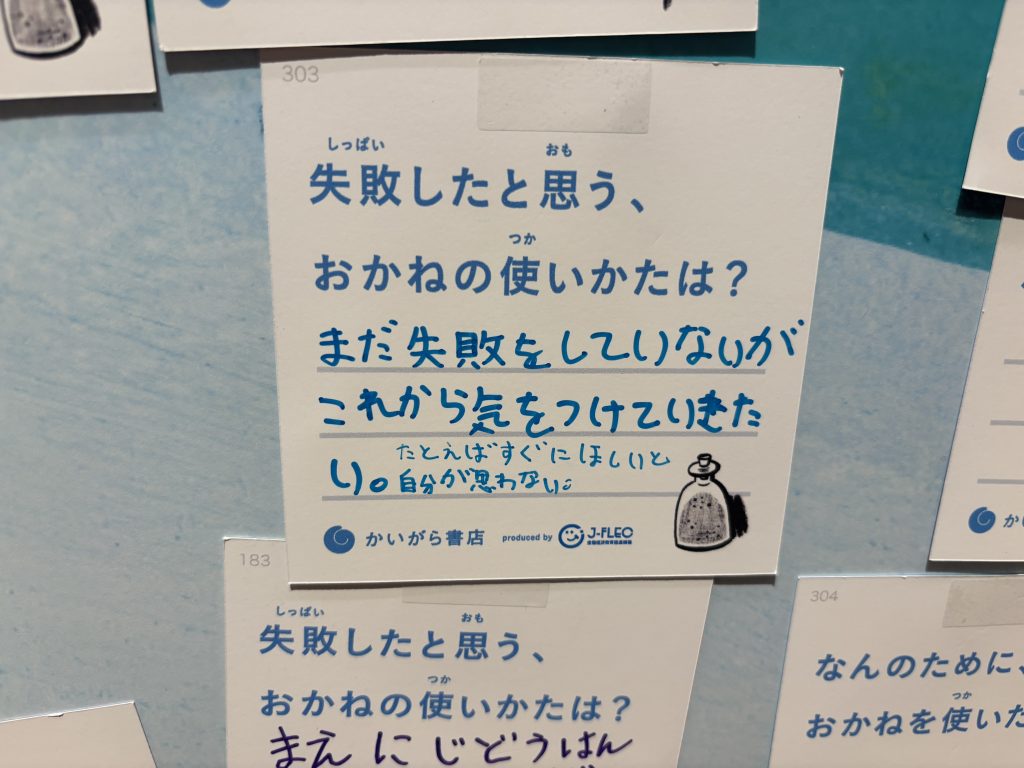 303
しっぱい おも
失敗したと思う、
つか
おかねの使いかたは？
まだ失敗をしていないが
これから気をつけていきた
い。たとえばすぐにほしいと
自分が思わない。
かいがら書店 produced by J-FLEC
183
しっぱい おも
失敗したと思う、
つか
おかねの使いかたは？
まえにじどうはん
304
なんのために、
つか
おかねを使いた
かい